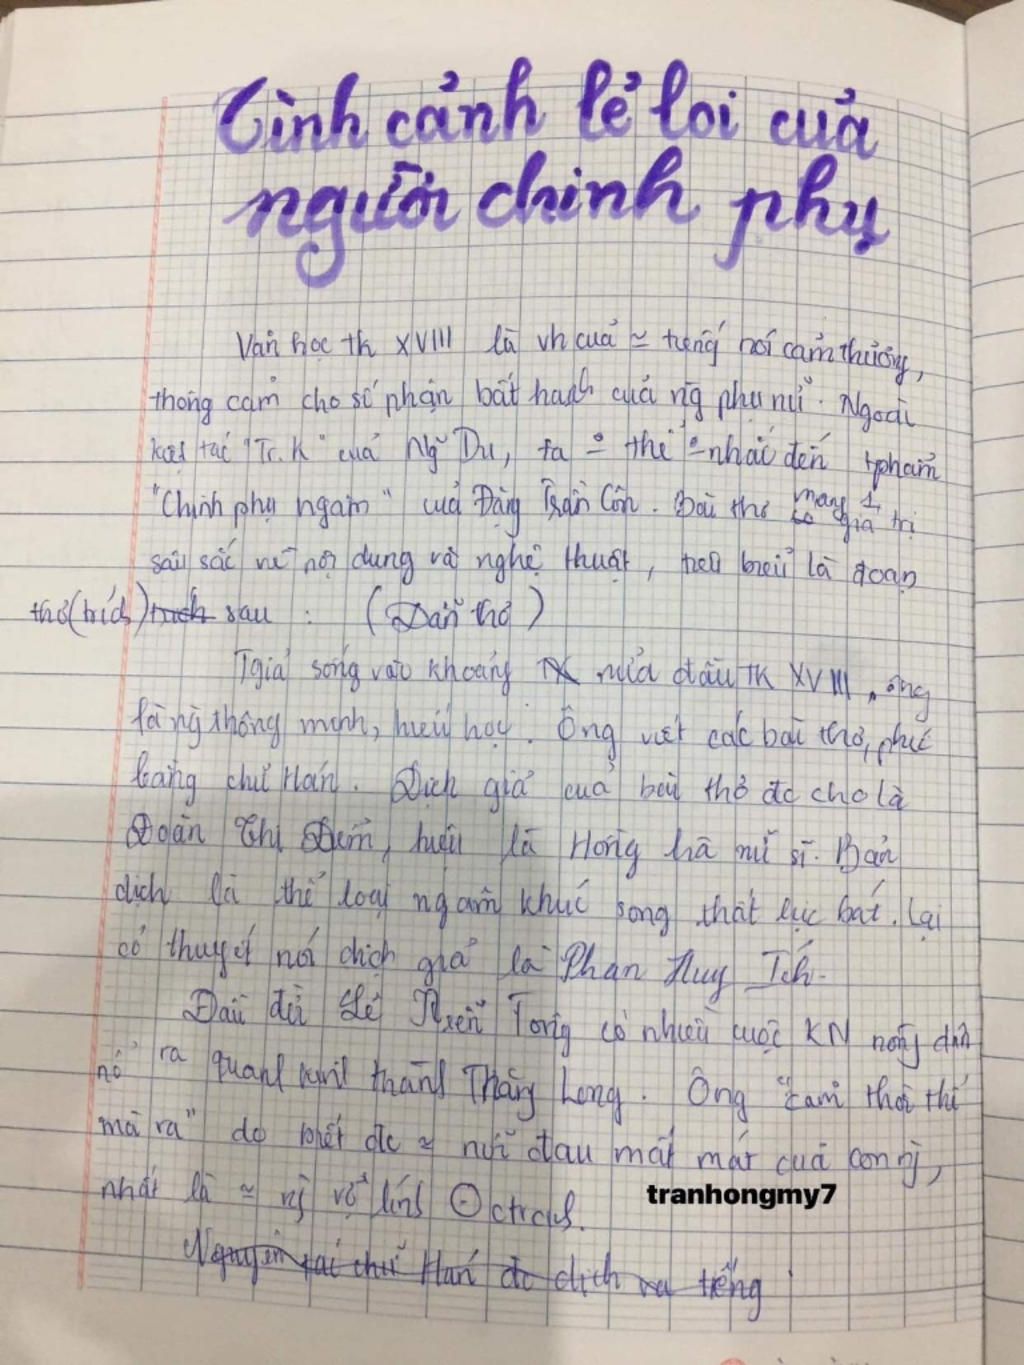 Tình cảnh lẻ loi của
người chinh phụ
Văn học tk XVIII là vh của ≃ tiếng nói cảm thương,
thông cảm cho số phận bất hạnh của ng phụ nữ. Ngoài
kiệt tác "Tr.K" của Ng Du, ta thể nhắc đến tphẩm
"Chinh phụ ngâm" của Đặng Trần Côn. Bài thơ mang 1 giá trị
sâu sắc về nội dung và nghệ thuật, tiêu biểu là đoạn
thơ (trích) trích sau : (Dẫn thơ)
Tgiả sống vào khoảng nửa đầu TK XVIII, ông
là ng thông minh, hiếu học. Ông viết các bài thơ, phú
bằng chữ Hán. Dịch giả của bài thơ đc cho là
Đoàn Thị Điểm, hiệu là Hồng hà nữ sĩ. Bản
dịch là thể loại ngâm khúc song thất lục bát. Lại
có thuyết nói dịch giả là Phan Huy Ích.
Đầu đời Lê Hiển Tông có nhiều cuộc KN nông dân
nổ ra quanh kinh thành Thăng Long. Ông "cảm thời thế
mà ra" do biết đc ≃ nỗi đau mất mát của con ng,
nhất là ≃ ng vợ lính ctranh.
tranhongmy7
Nguyên tác chữ Hán đc dịch ra tiếng